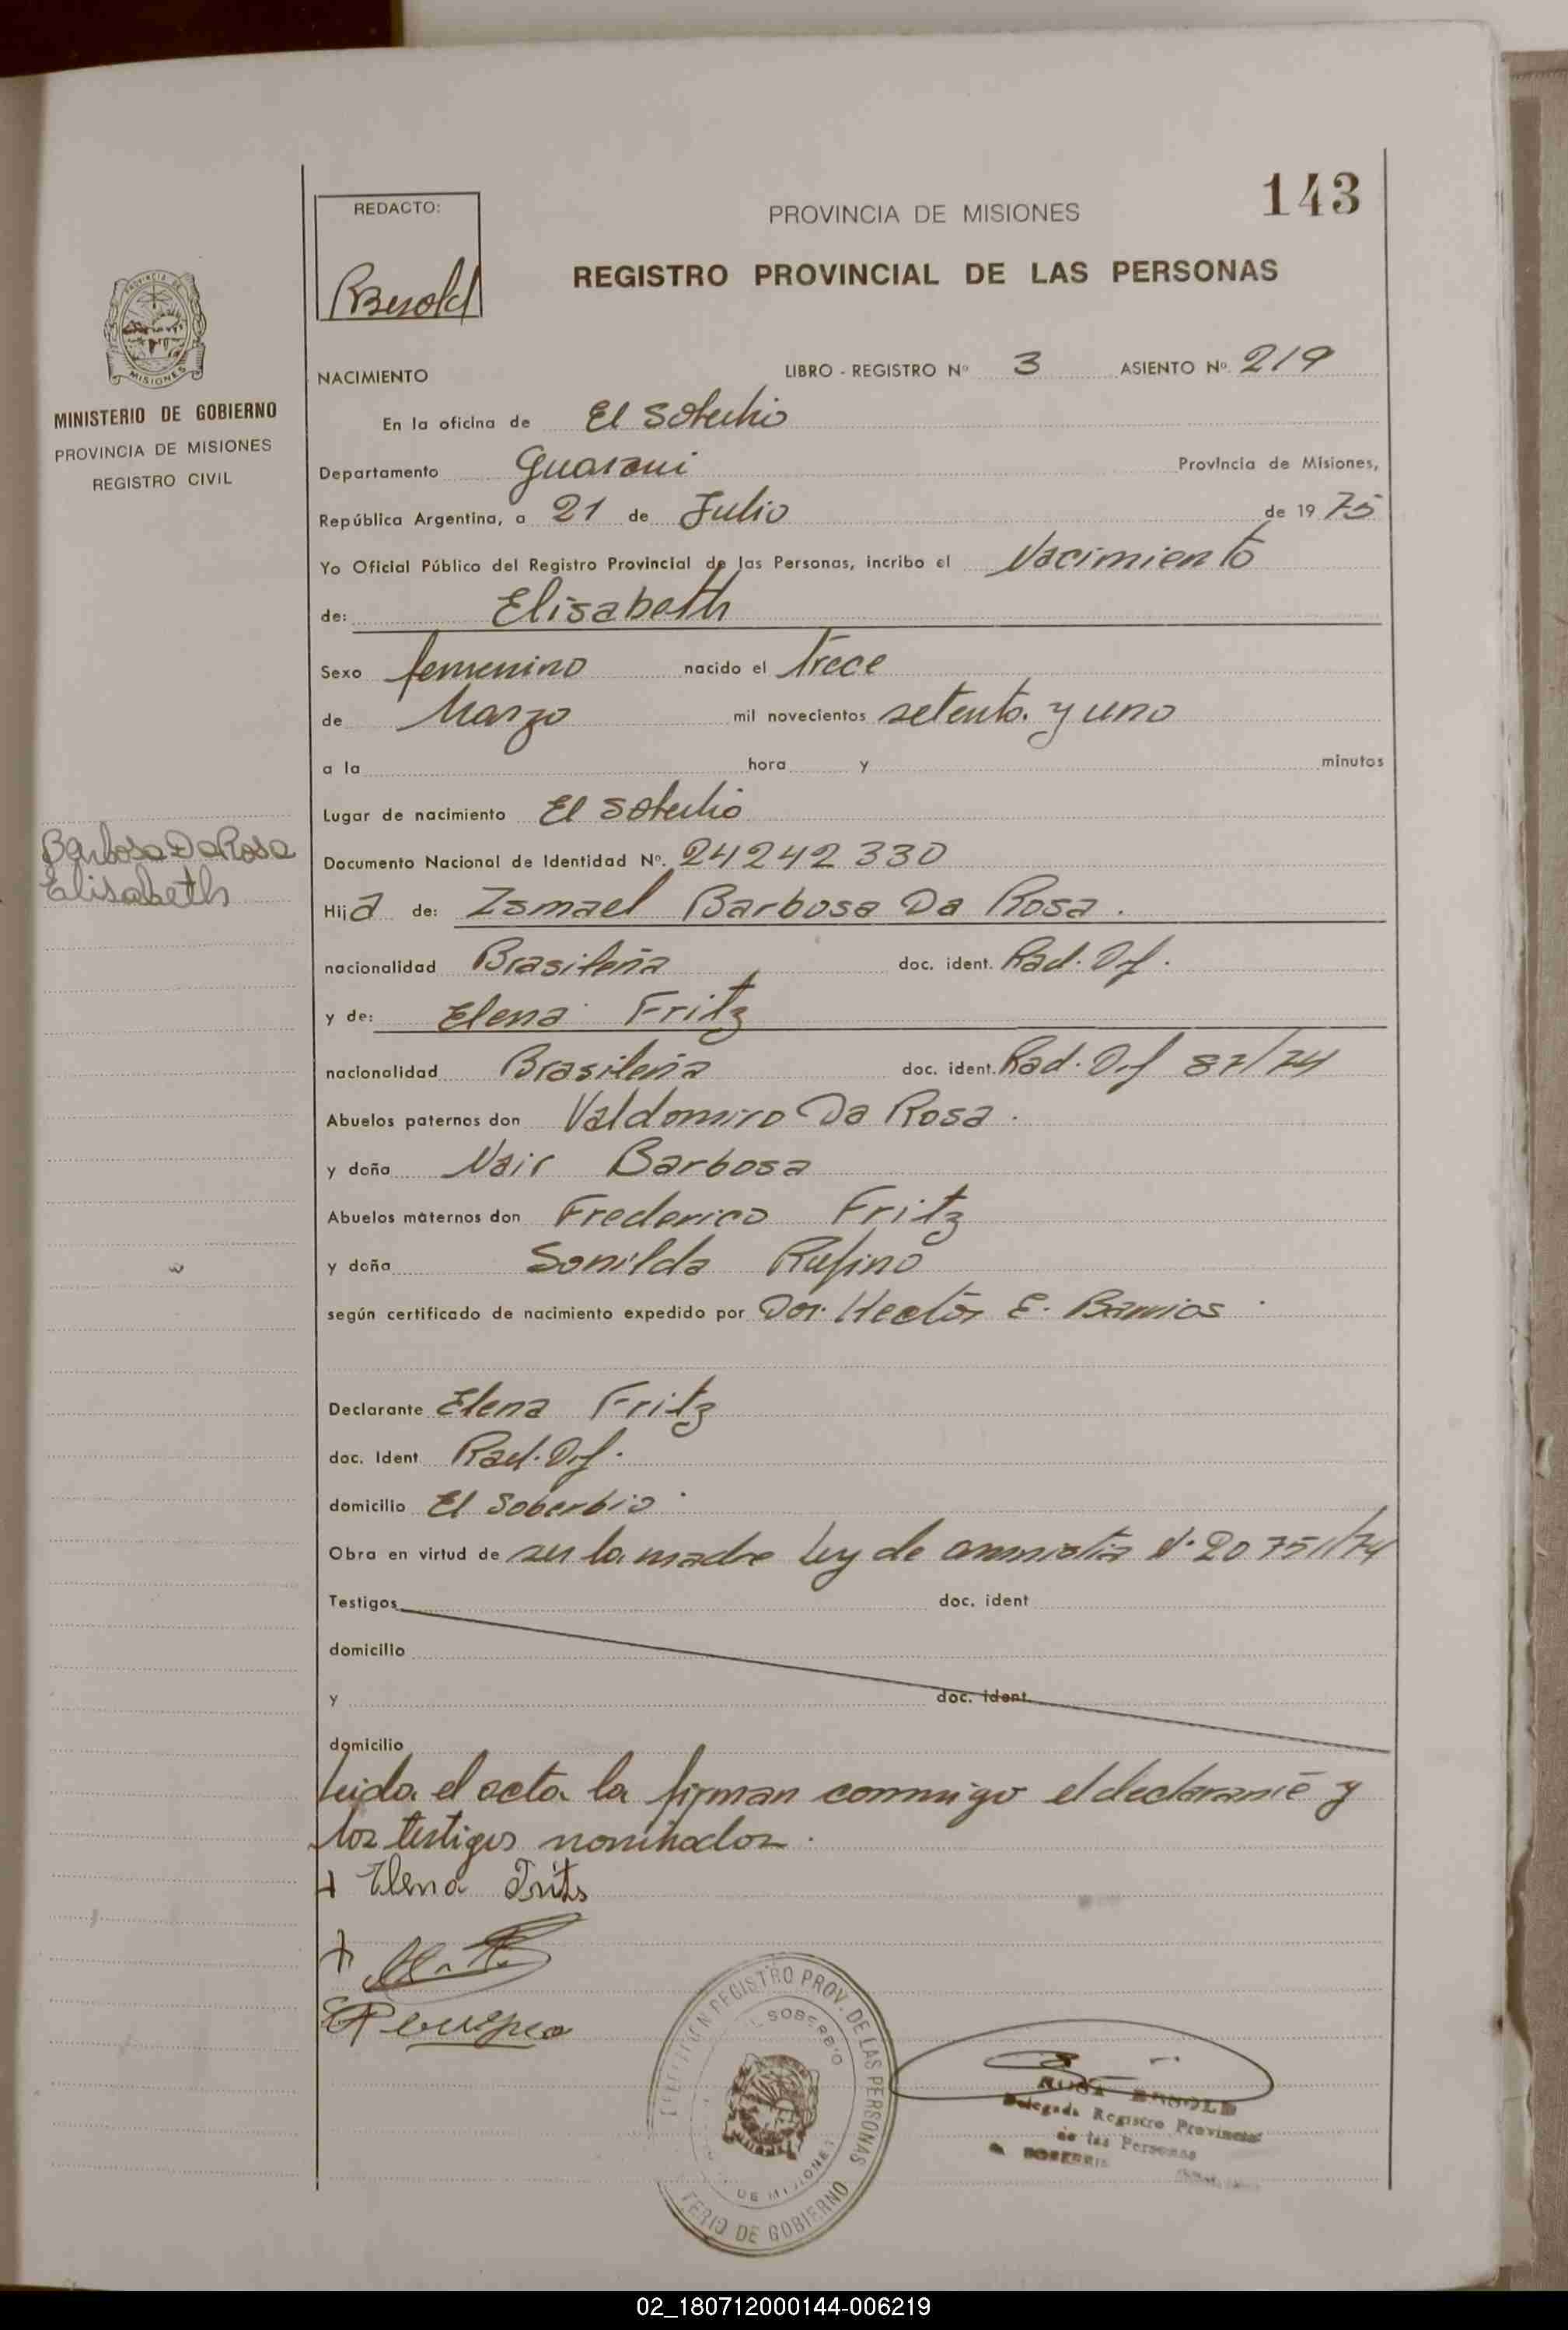 143
REDACTO:
Besold
PROVINCIA DE MISIONES
REGISTRO PROVINCIAL DE LAS PERSONAS
MISIONES
MINISTERIO DE GOBIERNO
PROVINCIA DE MISIONES
REGISTRO CIVIL
NACIMIENTO LIBRO - REGISTRO Nº 3 ASIENTO Nº 219
En la oficina de El Soberbio
Departamento Guarani Provincia de Misiones,
República Argentina, a 21 de Julio de 19 75
Yo Oficial Público del Registro Provincial de las Personas, incribo el Nacimiento
de: Elisabeth
Sexo femenino nacido el Trece
de Marzo mil novecientos setenta y uno
a la hora y minutos
Lugar de nacimiento El Soberbio
Barbosa Da Rosa
Elisabeth
Documento Nacional de Identidad Nº. 24242330
Hija de: Ismael Barbosa Da Rosa.
nacionalidad Brasileña doc. ident. Rad. Def.
y de: Elena Fritz
nacionalidad Brasileña doc. ident. Rad. Def 87/74
Abuelos paternos don Valdomiro Da Rosa.
y doña Nair Barbosa
Abuelos maternos don Frederico Fritz
y doña Sonilda Rufino
según certificado de nacimiento expedido por Dor. Hector E. Barrios.
Declarante Elena Fritz
doc. Ident. Rad. Def.
domicilio El Soberbio.
Obra en virtud de ser la madre ley de amnistia Nº 20751/74
Testigos doc. ident
domicilio
y doc. ident.
domicilio
leida el acta la firman conmigo el declarante y
los testigos nominados.
+ Elena Frits
+
REGISTRO PROV. DE LAS PERSONAS
SOBERBIO
DE MISIONES
TERIO DE GOBIERNO
ROSA BESOLD
Delegada Registro Provincial
de las Personas
SOBERBIO
02_180712000144-006219